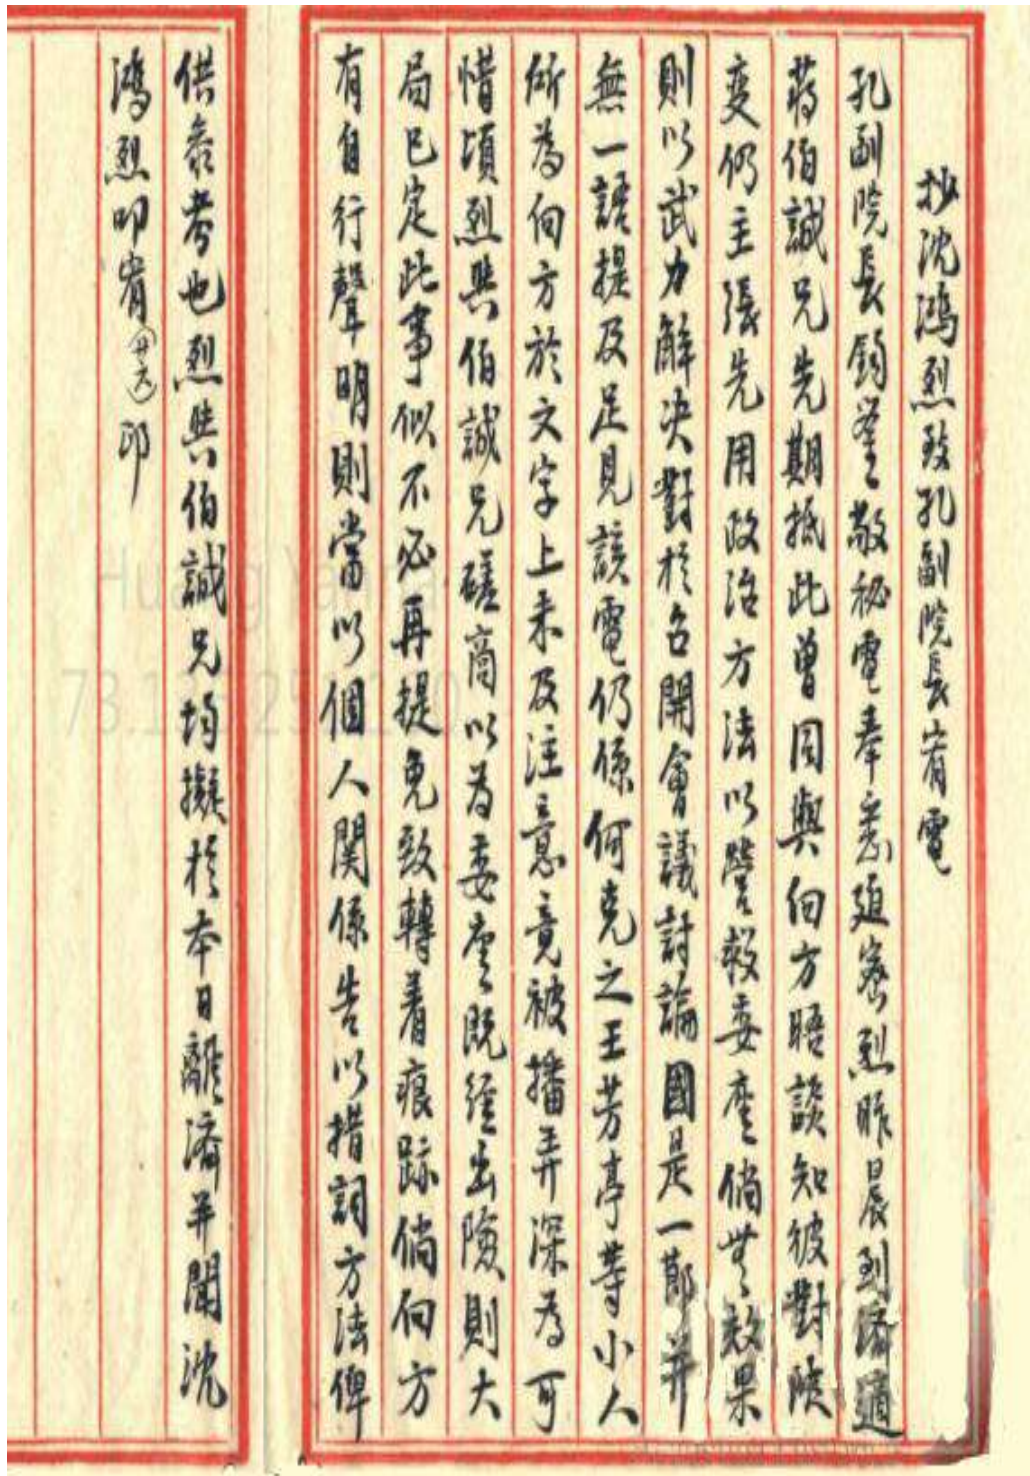 抄沈鴻烈致孔副院長宥電
孔副院長鈞鑒敬秘電奉悉極密烈昨晨到濟適
蔣伯誠兄先期抵此曾同與向方晤談知彼對陝
變仍主張先用政治方法以營救委座倘無效果
則以武力解決對於召開會議討論國是一節并
無一語提及足見該電仍係何克之王芳亭等小人
所為向方於文字上未及注意竟被播弄深為可
惜頃烈與伯誠兄磋商以為委座既經出險則大
局已定此事似不必再提免致轉着痕跡倘向方
有自行聲明則當以個人関係告以措詞方法俾
供參考也烈與伯誠兄均擬於本日離濟并聞沈
鴻烈叩宥(廿六)印